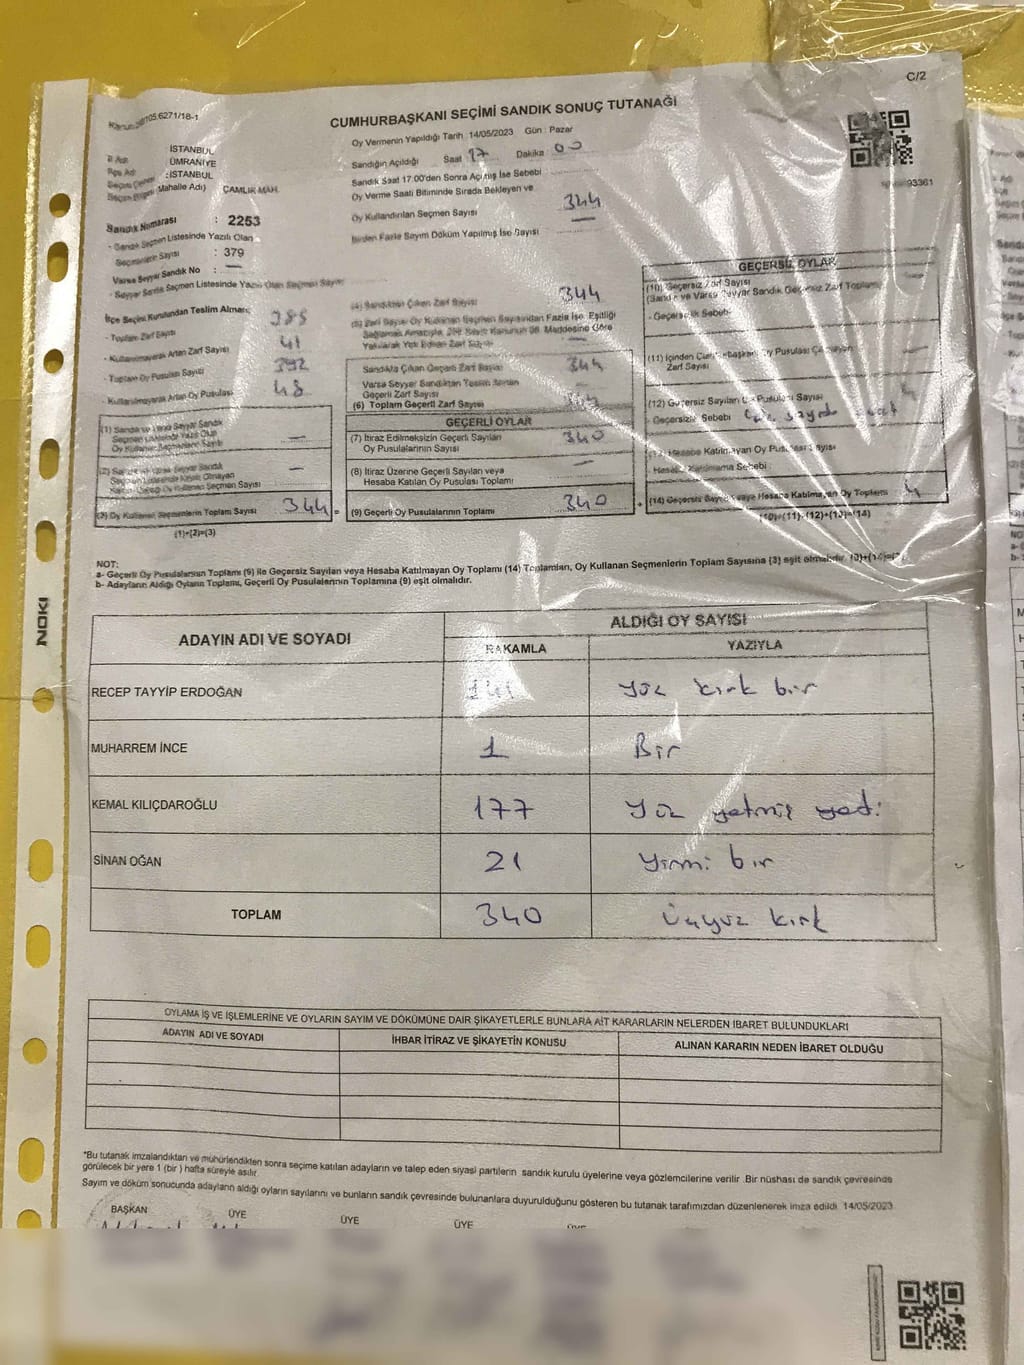 C/2
CUMHURBAŞKANI SEÇİMİ SANDIK SONUÇ TUTANAĞI
Oy Vermenin Yapıldığı Tarih 14/05/2023 Gün : Pazar
Sandığın Açıldığı Saat 17 Dakika 00
Sandık Saat 17:00'den Sonra Açılmış İse Sebebi :
Oy Verme Saati Bitiminde Sırada Bekleyen ve
Oy Kullandırılan Seçmen Sayısı 344
Birden Fazla Sayım Döküm Yapılmış İse Sayısı
93361
İl Adı : İSTANBUL
ÜMRANİYE
: İSTANBUL
Mahalle Adı) ÇAMLIK MAH.
Sandık Numarası : 2253
- Sandık Seçmen Listesinde Yazılı Olan
Seçmenlerin Sayısı : 379
Varsa Seyyar Sandık No : —
- Seyyar Sandık Seçmen Listesinde Yazılı Olan Seçmen Sayısı
İlçe Seçim Kurulundan Teslim Alınan;
- Toplam Zarf Sayısı 385
- Kullanılmayarak Artan Zarf Sayısı 41
- Toplam Oy Pusulası Sayısı 392
- Kullanılmayarak Artan Oy Pusulası 48
(1) Sandık ve Varsa Seyyar Sandık
Seçmen Listesinde Yazılı Olup
Oy Kullanan Seçmenlerin Sayısı —
(3) Oy Kullanan Seçmenlerin Toplam Sayısı 344 =
(1)+(2)=(3)
(4) Sandıktan Çıkan Zarf Sayısı 344
Sandıkta Çıkan Geçerli Zarf Sayısı 344
Varsa Seyyar Sandıktan Teslim Alınan
Geçerli Zarf Sayısı —
(6) Toplam Geçerli Zarf Sayısı
GEÇERLİ OYLAR
(7) İtiraz Edilmeksizin Geçerli Sayılan
Oy Pusulalarının Sayısı 340
(8) İtiraz Üzerine Geçerli Sayılan veya
Hesaba Katılan Oy Pusulası Toplamı —
(9) Geçerli Oy Pusulalarının Toplamı 340 +
GEÇERSİZ OYLAR
(10) Geçersiz Zarf Sayısı
(Sandık ve Varsa Seyyar Sandık Geçersiz Zarf Toplamı)
- Geçersizlik Sebebi
(11) İçinden Cumhurbaşkanı Oy Pusulası Çıkmayan
Zarf Sayısı —
(12) Geçersiz Sayılan Oy Pusulası Sayısı 4
- Geçersizlik Sebebi
Hesaba Katılmayan Oy Pusulası Sayısı
- Hesaba Katılmama Sebebi :
(14) Geçersiz Sayılan veya Hesaba Katılmayan Oy Toplamı 4
(10)+(11)+(12)+(13)=(14)
NOT:
a- Geçerli Oy Pusulalarının Toplamı (9) ile Geçersiz Sayılan veya Hesaba Katılmayan Oy Toplamı (14) Toplamları, Oy Kullanan Seçmenlerin Toplam Sayısına (3) eşit olmalıdır.
b- Adayların Aldığı Oyların Toplamı, Geçerli Oy Pusulalarının Toplamına (9) eşit olmalıdır.
NOKI
ADAYIN ADI VE SOYADI ALDIĞI OY SAYISI
RAKAMLA YAZIYLA
RECEP TAYYİP ERDOĞAN 141 Yüz kırk bir
MUHARREM İNCE 1 Bir
KEMAL KILIÇDAROĞLU 177 Yüz yetmiş yedi
SİNAN OĞAN 21 Yirmi bir
TOPLAM 340 Üçyüz kırk
OYLAMA İŞ VE İŞLEMLERİNE VE OYLARIN SAYIM VE DÖKÜMÜNE DAİR ŞİKAYETLERLE BUNLARA AİT KARARLARIN NELERDEN İBARET BULUNDUKLARI
ADAYIN ADI VE SOYADI İHBAR İTİRAZ VE ŞİKAYETİN KONUSU ALINAN KARARIN NEDEN İBARET OLDUĞU
*Bu tutanak imzalandıktan ve mühürlendikten sonra seçime katılan adayların ve talep eden siyasi partilerin sandık kurulu üyelerine veya gözlemcilerine verilir. Bir nüshası de sandık çevresinde
görülecek bir yere 1 (bir) hafta süreyle asılır.
Sayım ve döküm sonucunda adayların aldığı oyların sayılarını ve bunların sandık çevresinde bulunanlara duyurulduğunu gösteren bu tutanak tarafımızdan düzenlenerek imza edildi. 14/05/2023
BAŞKAN ÜYE ÜYE ÜYE ÜYE